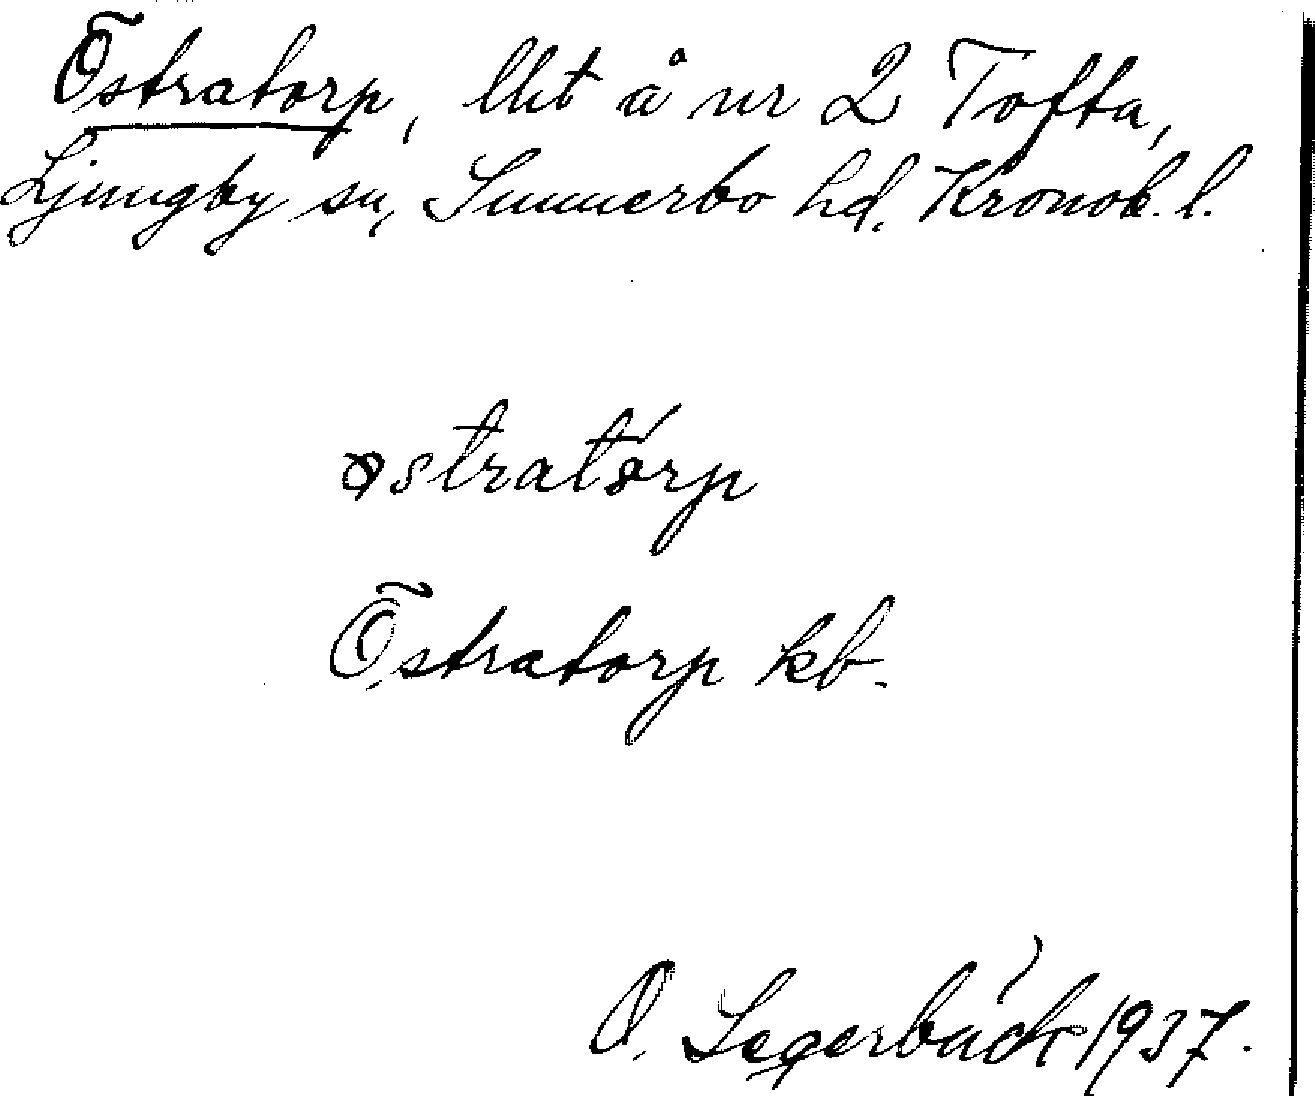 Östratorp, lht å nr 2 Tofta,
Ljungby sn, Sunnerbo hd. Kronob. l.
østratǿrp
Östratorp kb.
O. Segerbäck 1937.